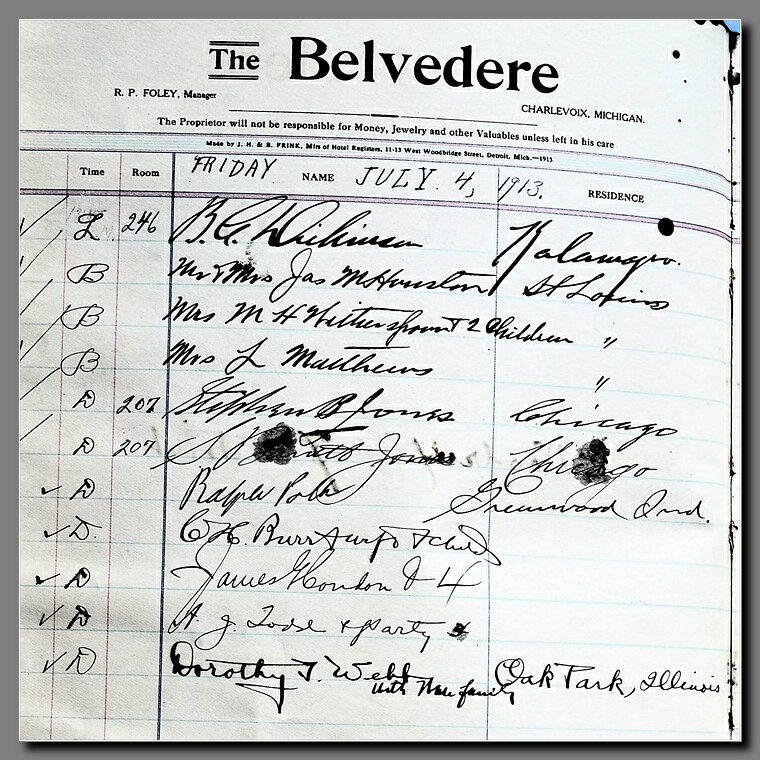 The Belvedere
R. P. FOLEY, Manager
CHARLEVOIX, MICHIGAN.
The Proprietor will not be responsible for Money, Jewelry and other Valuables unless left in his care
Made by J. H. & B. FRINK, Mfrs of Hotel Registers, 11-13 West Woodbridge Street, Detroit, Mich.—1913
Time Room NAME RESIDENCE
FRIDAY JULY 4, 1913.
L 246 B. G. Dickinson Kalamazoo.
B Mr & Mrs Jas M Houston St Louis
B Mrs M H Witherspoon & 2 Children "
B Mrs L Matthews "
D 207 Stephen B Jones Chicago
D 207 S Jones Chicago
✓ D Ralph Polk Greenwood Ind.
✓ D. C H. Burr wife & child
✓ D James & 4
✓ D A. J. Todd & party
✓ D Dorothy T. Webb Oak Park, Illinois
with family